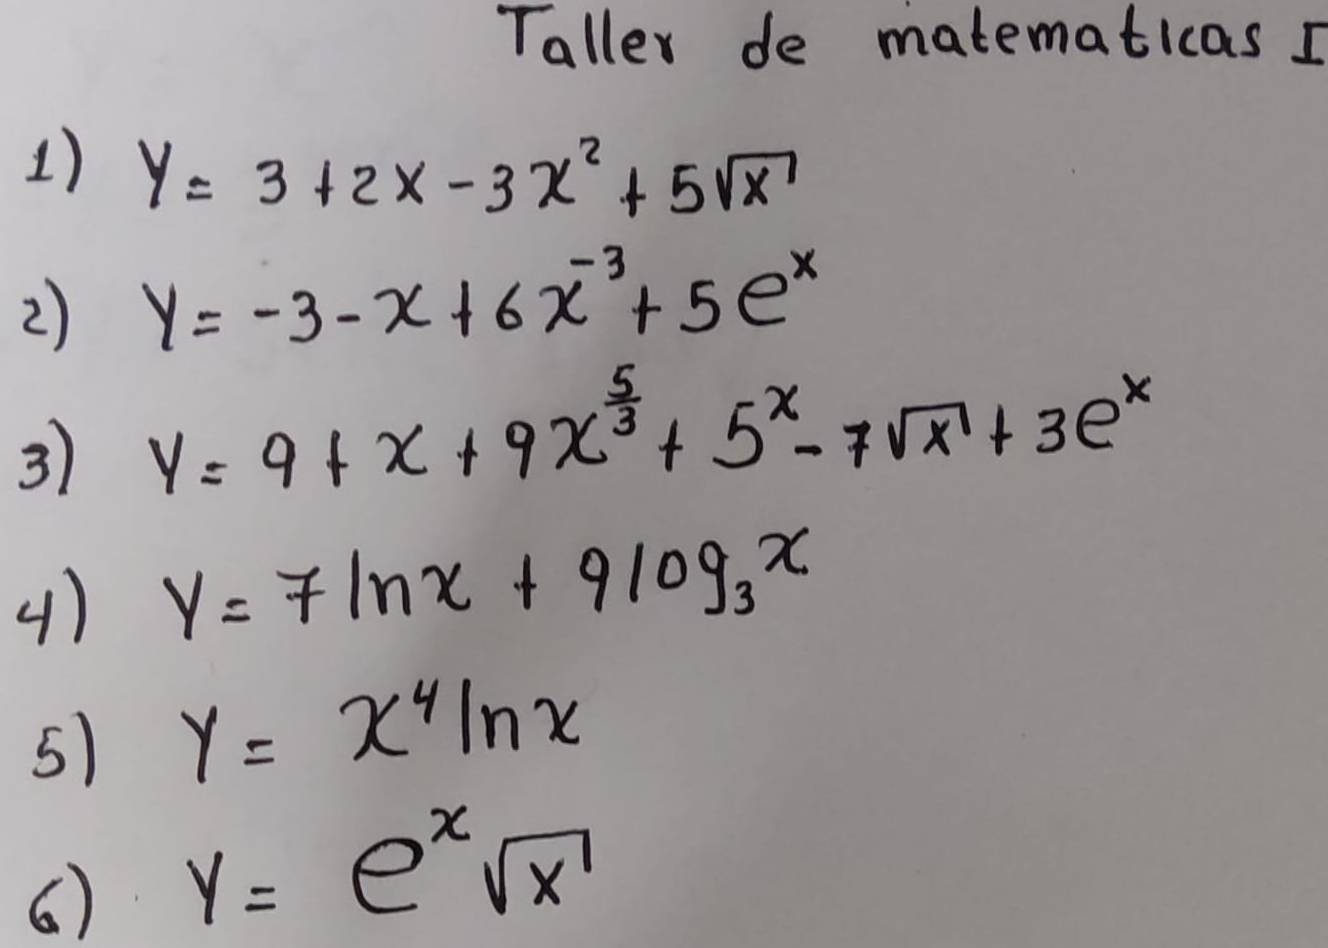 Taller de matematicas I
1) Y = 3 + 2x - 3x² + 5√x
2) Y = -3 - x + 6x⁻³ + 5eˣ
3) Y = 9 + x + 9x^(5/3) + 5ˣ - 7√x + 3eˣ
4) Y = 7 ln x + 9 log₃ x
5) Y = x⁴ ln x
6) Y = eˣ √x